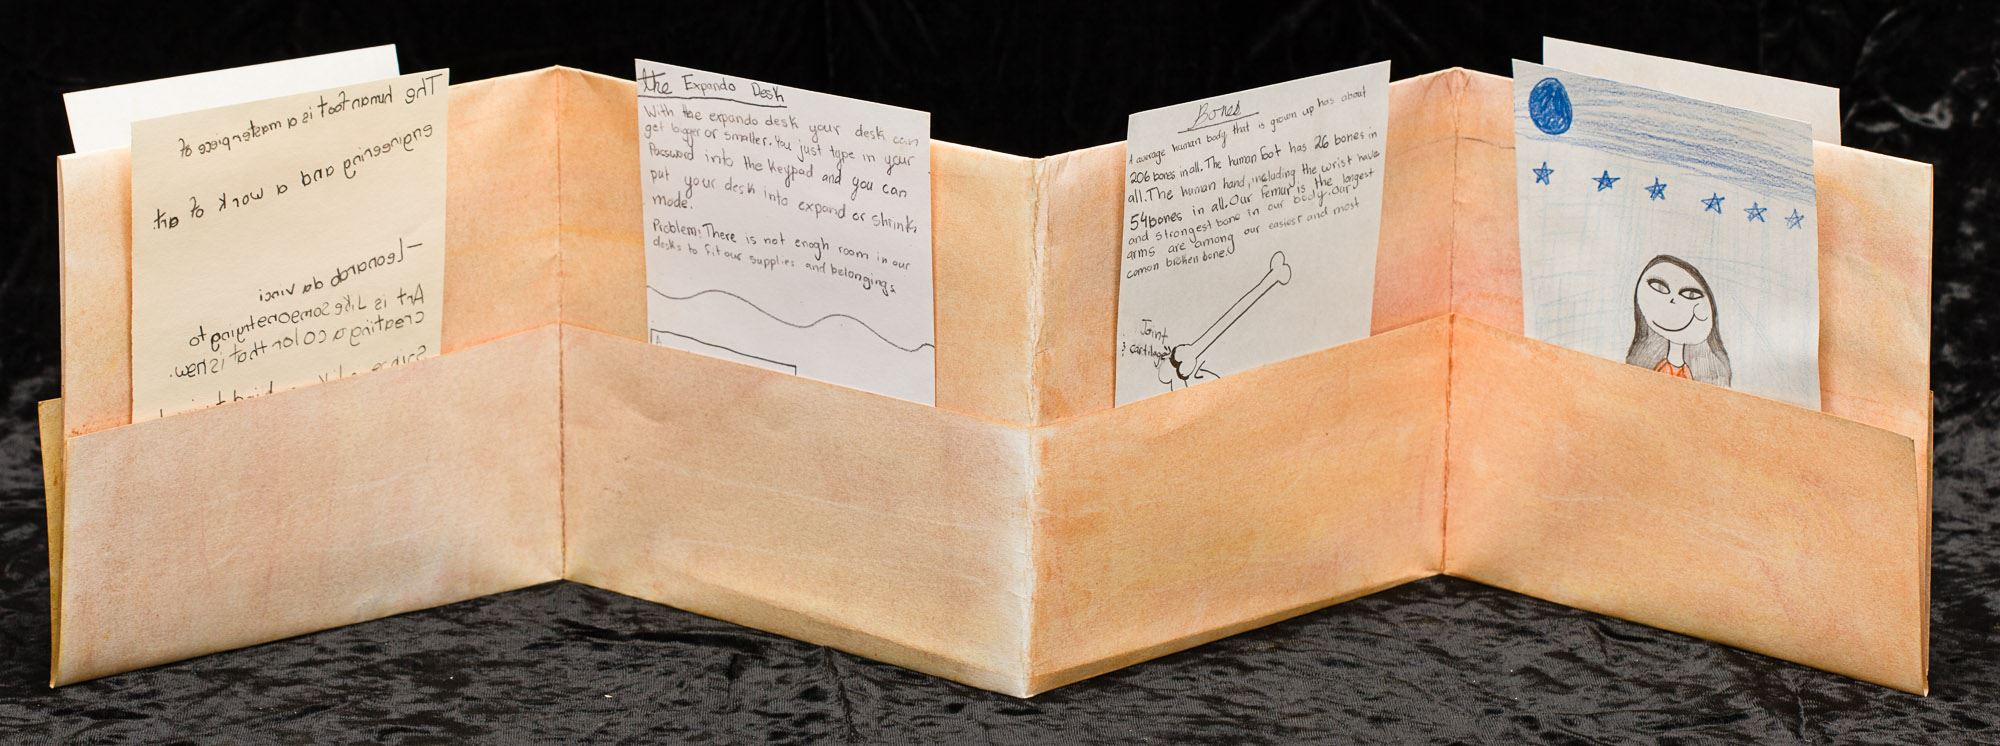 The human foot is a masterpiece of
engineering and a work of art.
—Leonardo da Vinci
Art is like someone trying to
creating a color that is new.
the Expando Desk
With the expando desk your desk can
get bigger or smaller. You just type in your
Password into the Keypad and you can
put your desk into expand or shrink
mode.
Problem: There is not enogh room in our
desks to fit our supplies and belongings
A
Bones
A average human body that is grown up has about
206 bones in all. The human foot has 26 bones in
all. The human hand, including the wrist have
54 bones in all. Our femur is the largest
and strongest bone in our body. Our
arms are among our easiest and most
comon broken bone.
Joint
cartilage